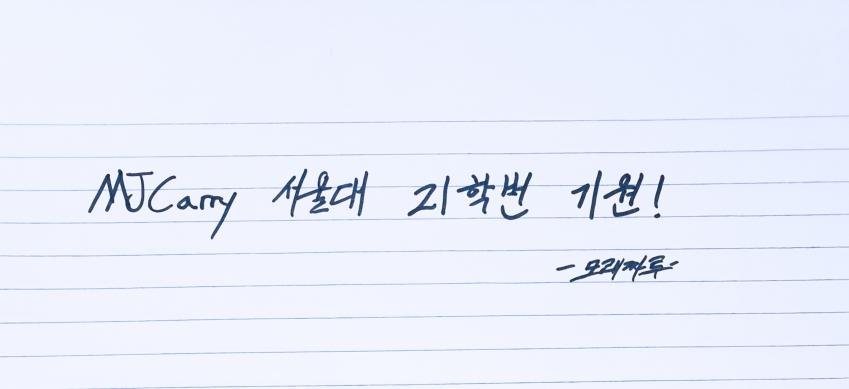 MJCarry 서울대 21학번 기원!
-모래짜루-